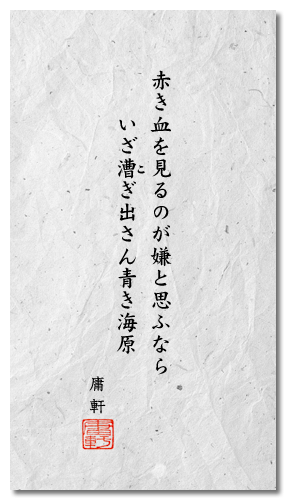 赤き血を見るのが嫌と思ふなら
いざ漕ぎ出さん青き海原
こ
庸軒
庸軒